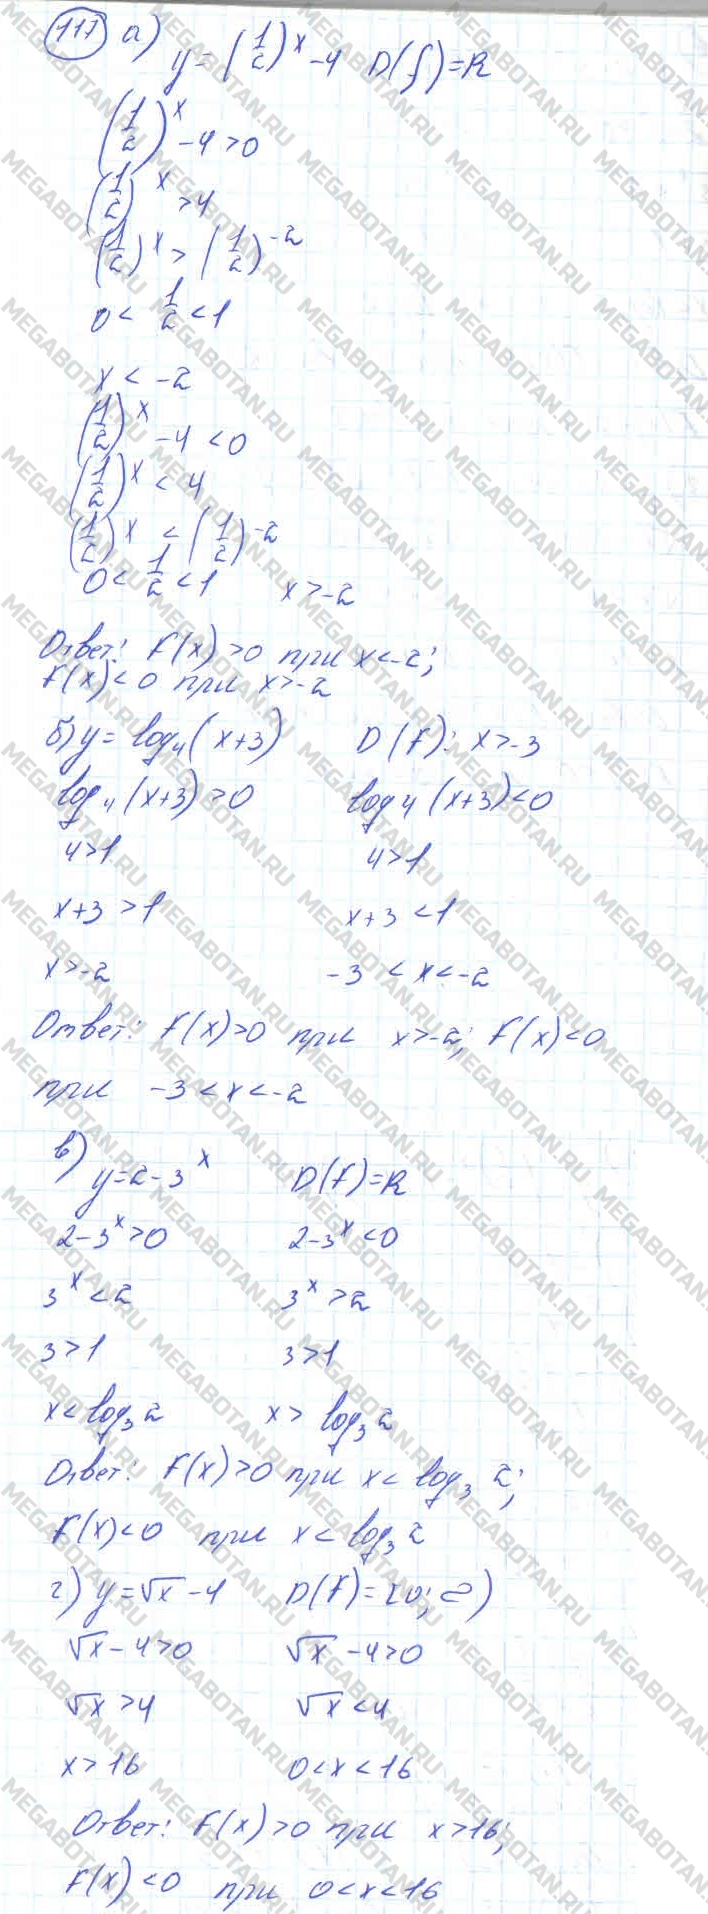 111 а) y = (1/2)^x - 4 D(f) = R
(1/2)^x - 4 > 0
(1/2)^x > 4
(1/2)^x > (1/2)^-2
0 < 1/2 < 1
x < -2
(1/2)^x - 4 < 0
(1/2)^x < 4
(1/2)^x < (1/2)^-2
0 < 1/2 < 1 x > -2
Ответ: f(x) > 0 при x < -2;
f(x) < 0 при x > -2
б) y = log₄(x+3) D(f): x > -3
log₄(x+3) > 0 log₄(x+3) < 0
4 > 1 4 > 1
x+3 > 1 x+3 < 1
x > -2 -3 < x < -2
Ответ: f(x) > 0 при x > -2; f(x) < 0
при -3 < x < -2
в) y = 2 - 3^x D(f) = R
2 - 3^x > 0 2 - 3^x < 0
3^x < 2 3^x > 2
3 > 1 3 > 1
x < log₃ 2 x > log₃ 2
Ответ: f(x) > 0 при x < log₃ 2;
f(x) < 0 при x < log₃ 2
г) y = √x - 4 D(f) = [0; ∞)
√x - 4 > 0 √x - 4 > 0
√x > 4 √x < 4
x > 16 0 < x < 16
Ответ: f(x) > 0 при x > 16;
f(x) < 0 при 0 < x < 16
MEGABOTAN.RU